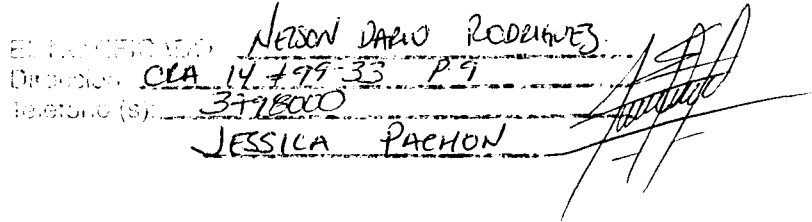 EL NOTIFICADO NELSON DARIO RODRIGUEZ
Dirección CRA 14 # 99-33 P.9
Teléfono (s): 3798000
JESSICA PACHON